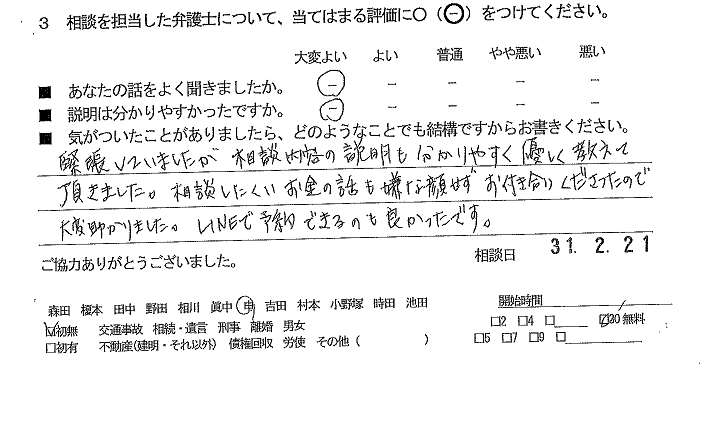 3 相談を担当した弁護士について、当てはまる評価に○(㊀)をつけてください。
大変よい よい 普通 やや悪い 悪い
■ あなたの話をよく聞きましたか。 － － － － －
■ 説明は分かりやすかったですか。 － － － － －
■ 気がついたことがありましたら、どのようなことでも結構ですからお書きください。
緊張していましたが 相談内容の説明も分かりやすく優しく教えて
頂きました。相談しにくいお金の話も嫌な顔せず お付き合いくださったので
大変助かりました。LINEで予約できるのも良かったです。
ご協力ありがとうございました。
相談日 31. 2. 21
森田 榎本 田中 野田 相川 眞中 申 吉田 村本 小野塚 時田 池田
開始時間
☑初無 交通事故 相続・遺言 刑事 離婚 男女
□2 □4 □ ☑30無料
□初有 不動産(建明・それ以外) 債権回収 労使 その他 ( )
□5 □7 □9 □